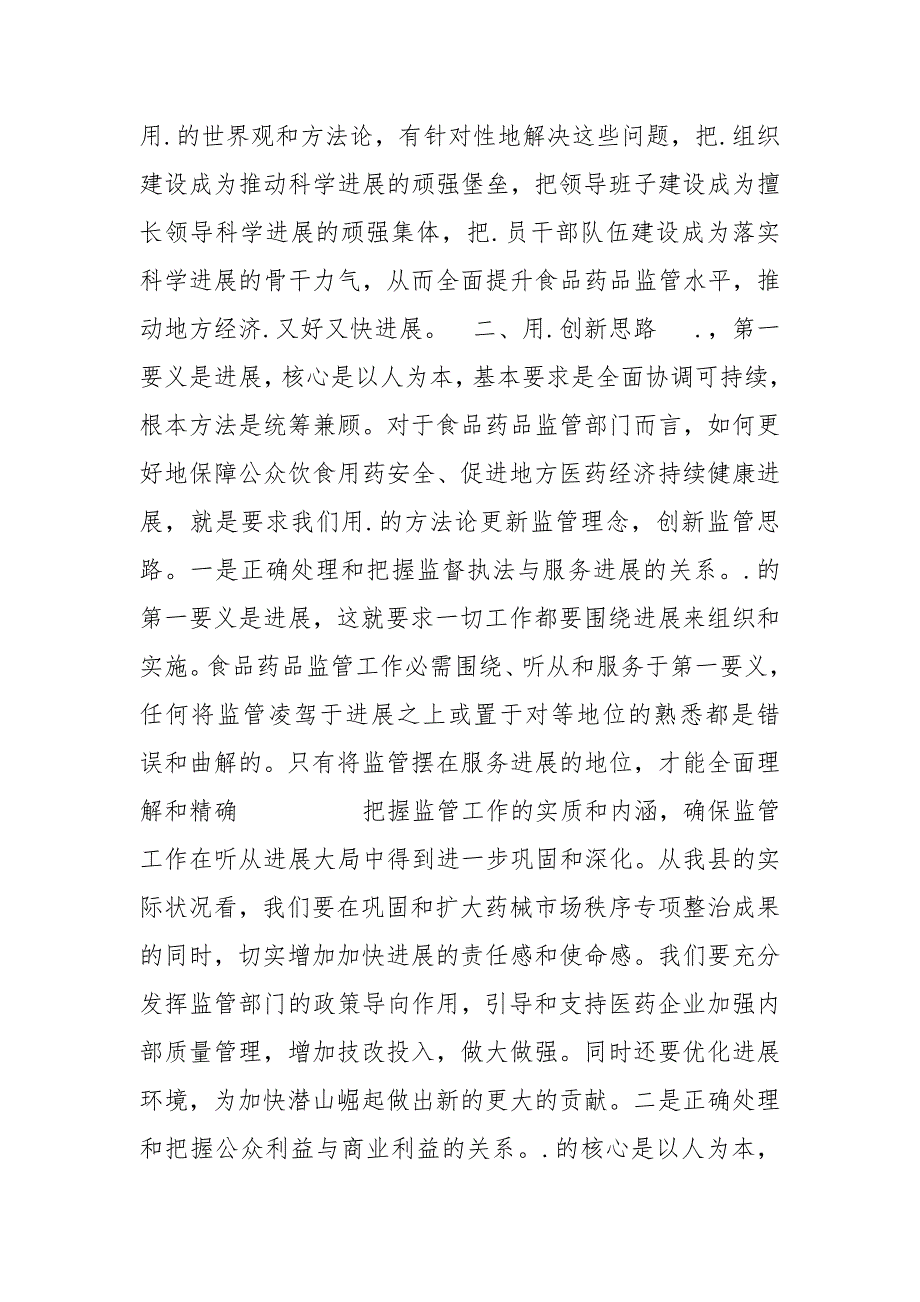 用.的世界观和方法论，有针对性地解决这些问题，把.组织
建设成为推动科学进展的顽强堡垒，把领导班子建设成为擅
长领导科学进展的顽强集体，把.员干部队伍建设成为落实
科学进展的骨干力气，从而全面提升食品药品监管水平，推
动地方经济.又好又快进展。 二、用.创新思路 .，第一
要义是进展，核心是以人为本，基本要求是全面协调可持续，
根本方法是统筹兼顾。对于食品药品监管部门而言，如何更
好地保障公众饮食用药安全、促进地方医药经济持续健康进
展，就是要求我们用.的方法论更新监管理念，创新监管思
路。一是正确处理和把握监督执法与服务进展的关系。.的
第一要义是进展，这就要求一切工作都要围绕进展来组织和
实施。食品药品监管工作必需围绕、听从和服务于第一要义，
任何将监管凌驾于进展之上或置于对等地位的熟悉都是错
误和曲解的。只有将监管摆在服务进展的地位，才能全面理
解和精确 把握监管工作的实质和内涵，确保监管
工作在听从进展大局中得到进一步巩固和深化。从我县的实
际状况看，我们要在巩固和扩大药械市场秩序专项整治成果
的同时，切实增加加快进展的责任感和使命感。我们要充分
发挥监管部门的政策导向作用，引导和支持医药企业加强内
部质量管理，增加技改投入，做大做强。同时还要优化进展
环境，为加快潜山崛起做出新的更大的贡献。二是正确处理
和把握公众利益与商业利益的关系。.的核心是以人为本，